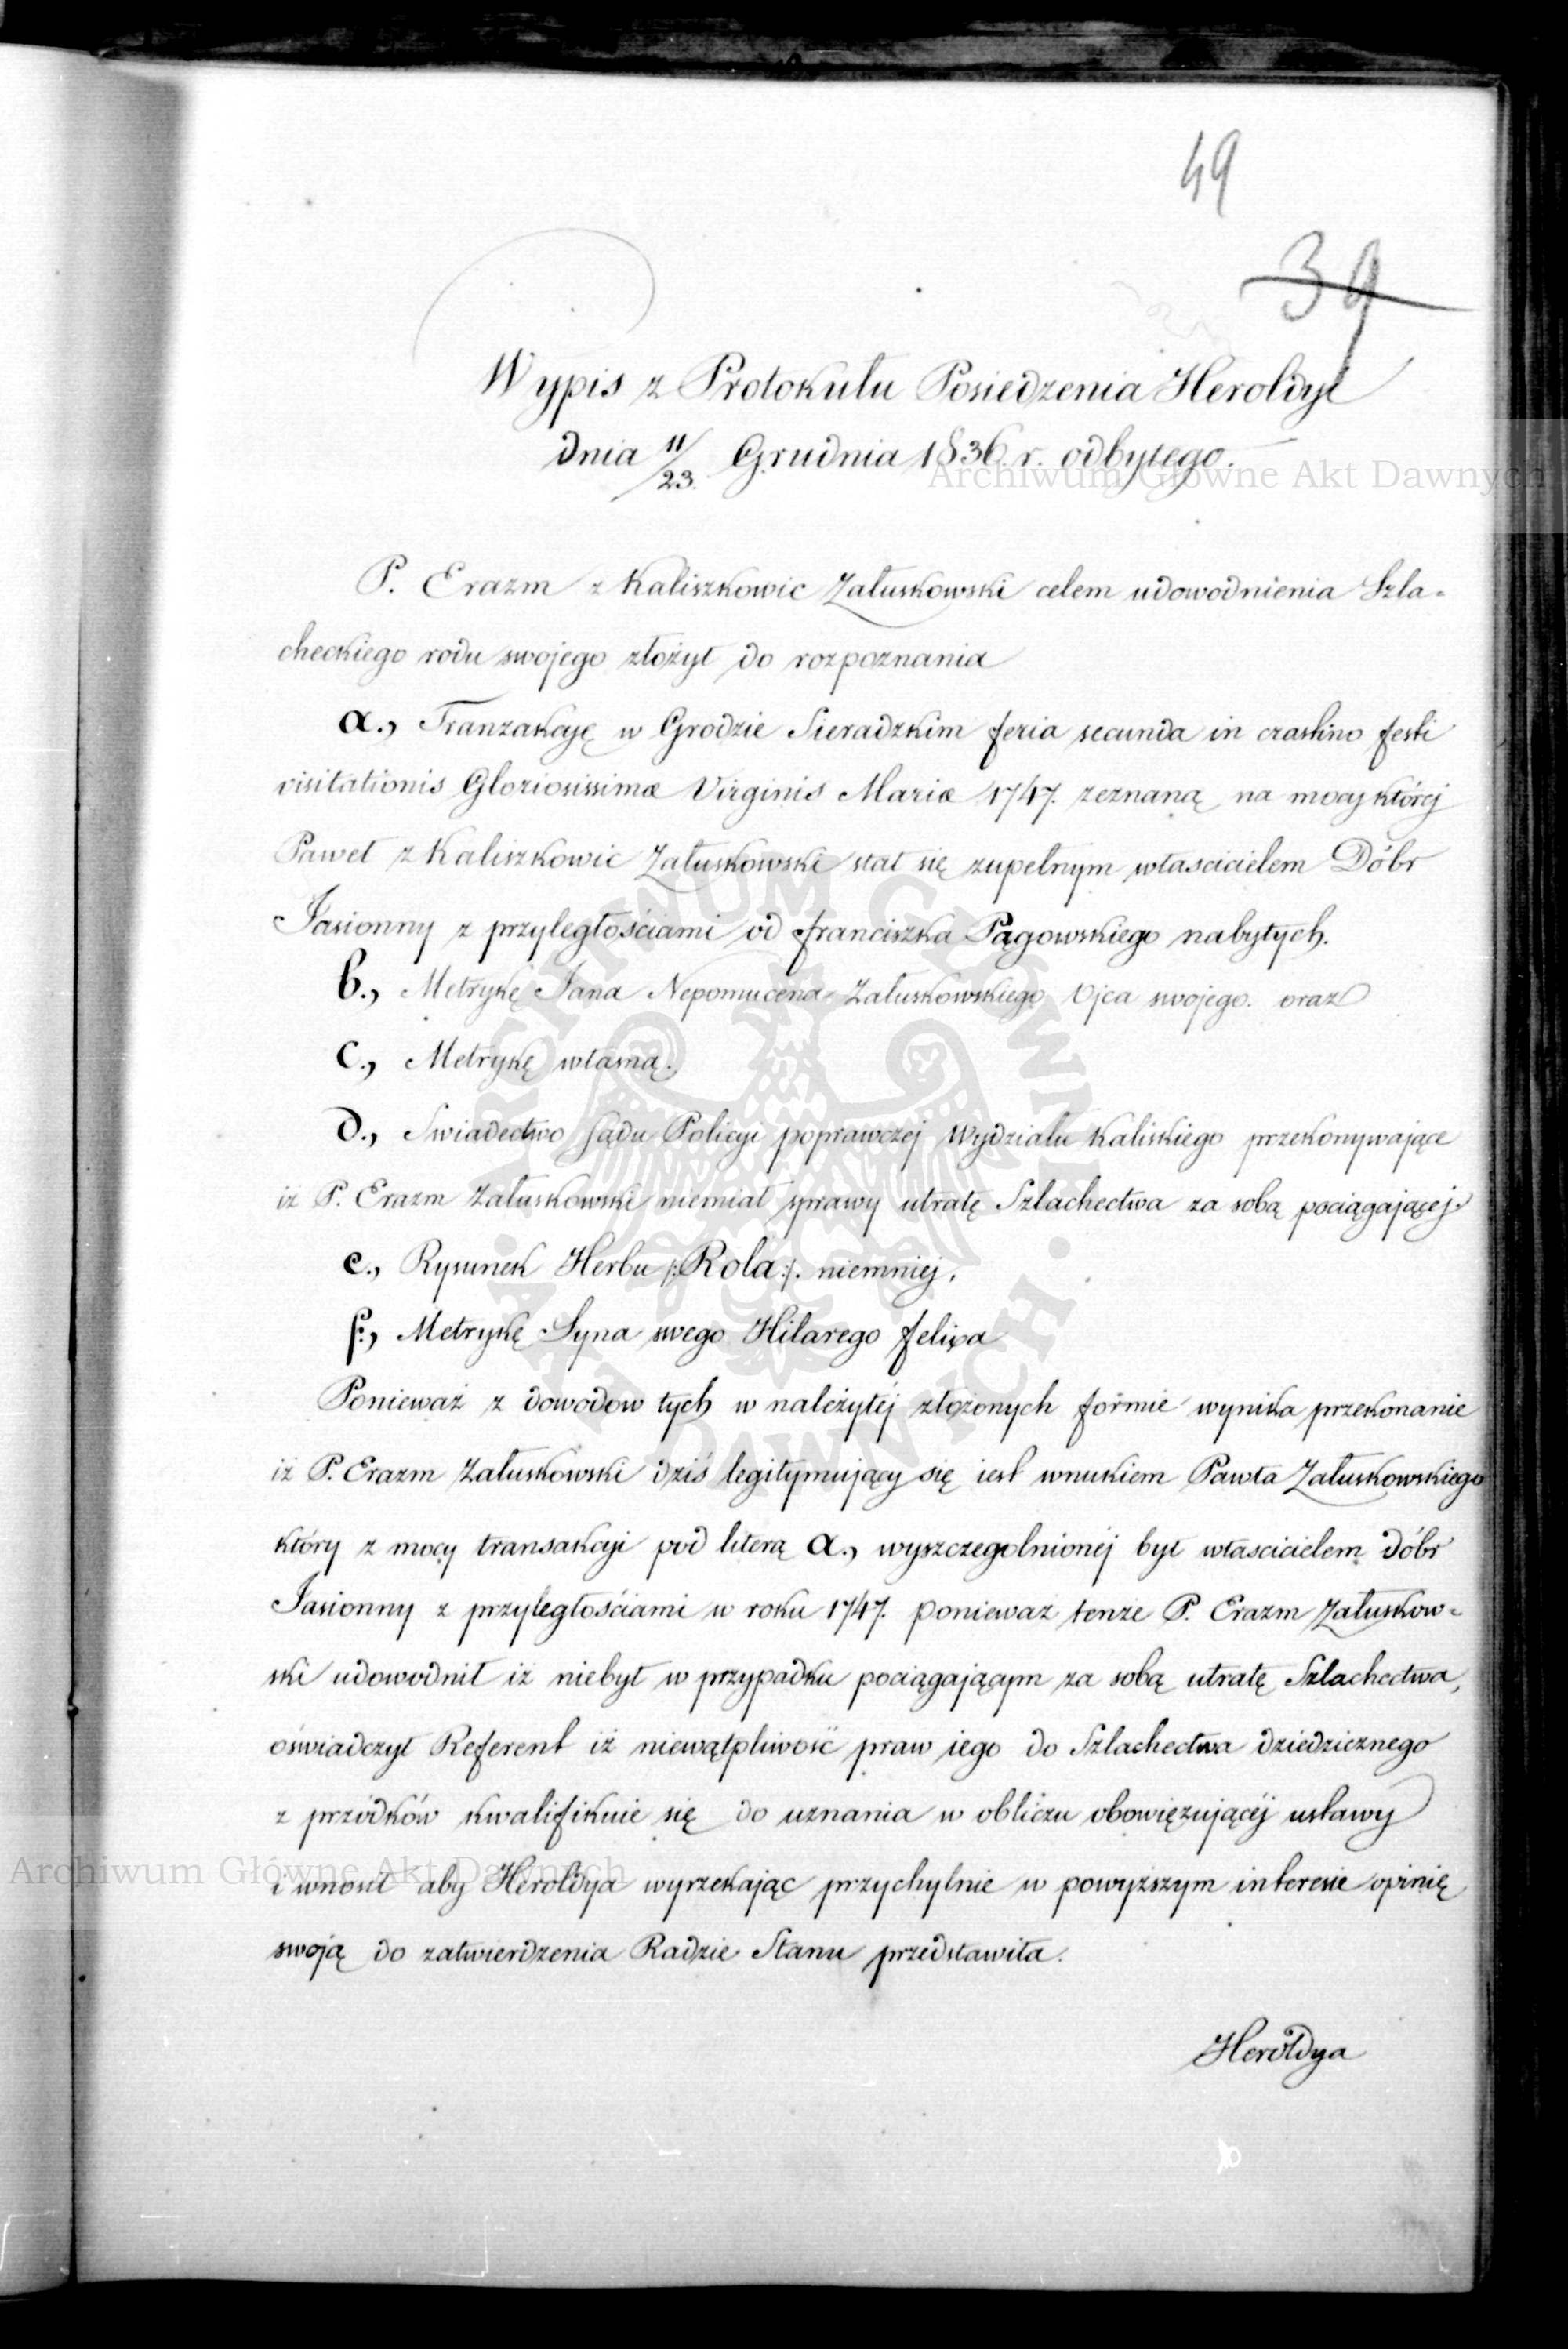 49
39
Wypis z Protokułu Posiedzenia Heroldyi
dnia 11/23. Grudnia 1836 r. odbytego.
P. Erazm z Kaliszkowic Załuskowski celem udowodnienia Szla=
checkiego rodu swojego złożył do rozpoznania
a., Tranzakcyę w Grodzie Sieradzkim feria secunda in crastino festi
visitationis Gloriosissimæ Virginis Mariæ 1747. zeznaną na mocy której
Paweł z Kaliszkowic Załuskowski stał się zupełnym włascicielem Dóbr
Jasionny z przyległościami od Franciszka Pągowskiego nabytych.
b., Metrykę Jana Nepomucena Załuskowskiego Ojca swojego. oraz
c., Metrykę własną.
d., Swiadectwo Sądu Policyi poprawczej Wydziału Kaliskiego przekonywające
iż P. Erazm Załuskowski niemiał sprawy utratę Szlachectwa za sobą pociągającej.
e., Rysunek Herbu /:Rola:/. niemniej,
f., Metrykę Syna swego Hilarego Felixa
Ponieważ z dowodow tych w należytéj złożonych formie wynika przekonanie
iż P. Erazm Załuskowski dziś legitymujący się iest wnukiem Pawła Załuskowskiego
który z mocy transakcyi pod literą a., wyszczegolnionéj był włascicielem dóbr
Jasionny z przyległościami w roku 1747. ponieważ tenże P. Erazm Załuskow=
ski udowodnił iż niebył w przypadku pociągającym za sobą utratę Szlachectwa,
oświadczył Referent iż niewątpliwość praw iego do Szlachectwa dziedzicznego
z przodków kwalifikuie się do uznania w obliczu obowięzującéj ustawy
i wnosił aby Heroldya wyrzekając przychylnie w powyższym interesie opinię
swoją do zatwierdzenia Radzie Stanu przedstawiła.
Heroldya
Archiwum Główne Akt Dawnych
Archiwum Główne Akt Dawnych
ARCHIWUM GŁÓWNE AKT DAWNYCH